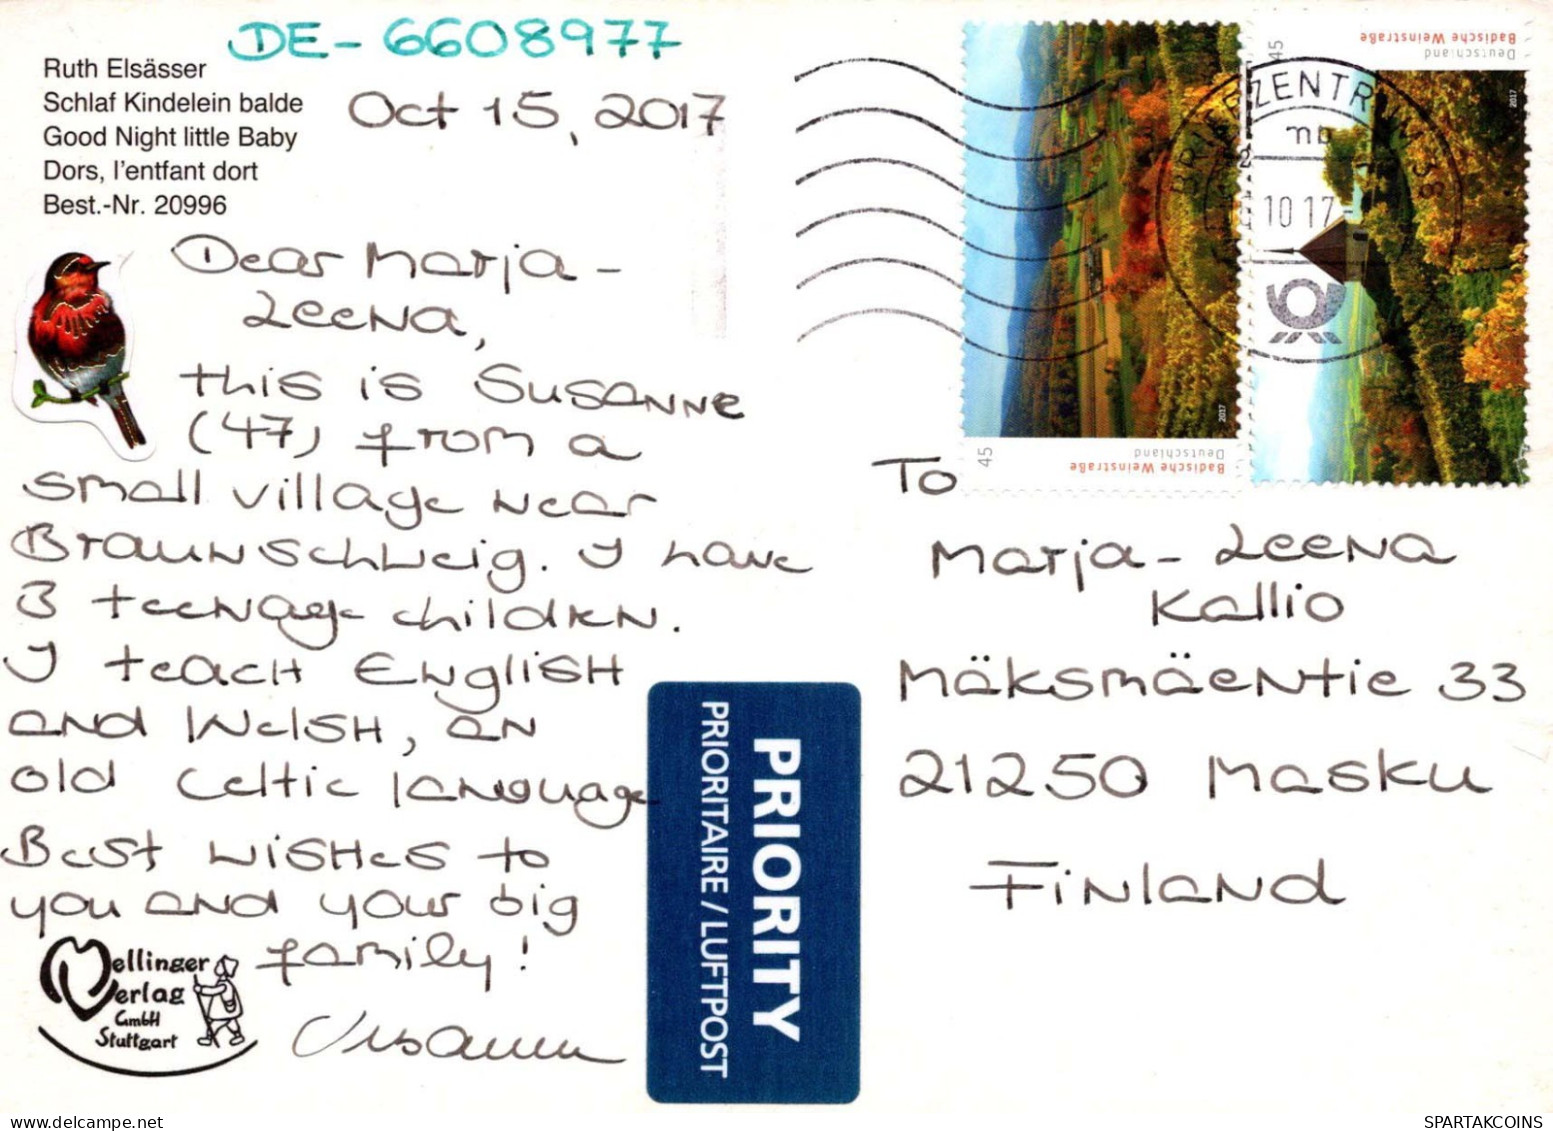 DE-6608977
Ruth Elsässer
Schlaf Kindelein balde
Good Night little Baby
Dors, l'entfant dort
Best.-Nr. 20996
Oct 15, 2017
Dear Marja-
Leena,
this is Susanne
(47) from a
small village near
Braunschweig. I have
3 teenage children.
I teach English
and Welsh, an
old Celtic language
Best wishes to
you and your big
family!
Susanne
Mellinger
Verlag
GmbH
Stuttgart
PRIORITY
PRIORITAIRE / LUFTPOST
45
Deutschland
Badische Weinstraße
2017
45
Deutschland
Badische Weinstraße
2017
BRIEFZENTRUM
10 17
To
Marja-Leena
Kallio
Mäksmäentie 33
21250 Masku
Finland
SPARTAKCOINS